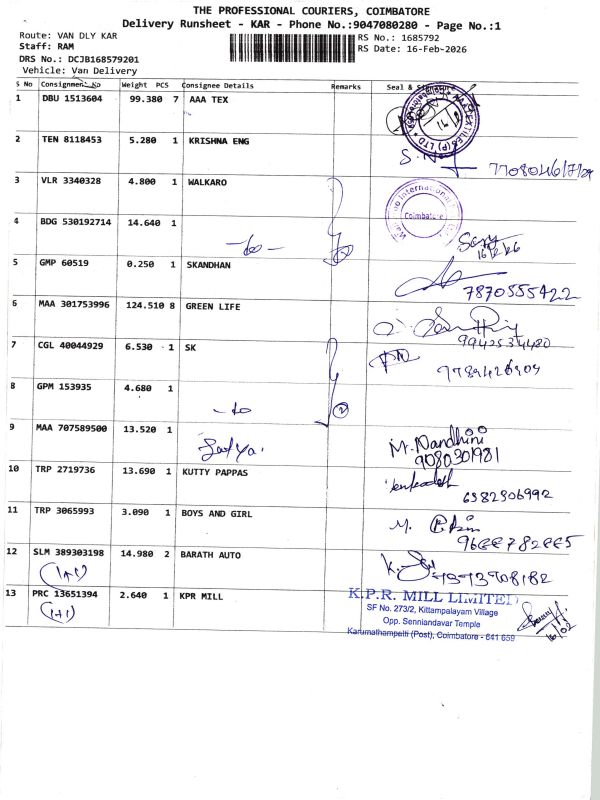 THE PROFESSIONAL COURIERS, COIMBATORE
Delivery Runsheet - KAR - Phone No.:9047080280 - Page No.:1
Route: VAN DLY KAR
Staff: RAM
DRS No.: DCJB168579201
Vehicle: Van Delivery
RS No.: 1685792
RS Date: 16-Feb-2026
S No Consignment No Weight PCS Consignee Details Remarks Seal & Signature
1 DBU 1513604 99.380 7 AAA TEX
2 TEN 8118453 5.280 1 KRISHNA ENG
3 VLR 3340328 4.800 1 WALKARO
Coimbatore
4 BDG 530192714 14.640 1
-do-
16/2/26
5 GMP 60519 0.250 1 SKANDHAN
7870555422
6 MAA 301753996 124.510 8 GREEN LIFE
9942534480
7 CGL 40044929 6.530 1 SK
8 GPM 153935 4.680 1
-do
2
9 MAA 707589500 13.520 1
Satya.
M. Nandhini
9080301981
10 TRP 2719736 13.690 1 KUTTY PAPPAS
6382306992
11 TRP 3065993 3.090 1 BOYS AND GIRL
12 SLM 389303198 14.980 2 BARATH AUTO
(1+1)
13 PRC 13651394 2.640 1 KPR MILL
(1+1)
K.P.R. MILL LIMITED
SF No. 273/2, Kittampalayam Village
Opp. Senniandavar Temple
Karumathampatti (Post), Coimbatore - 641 659
16/02